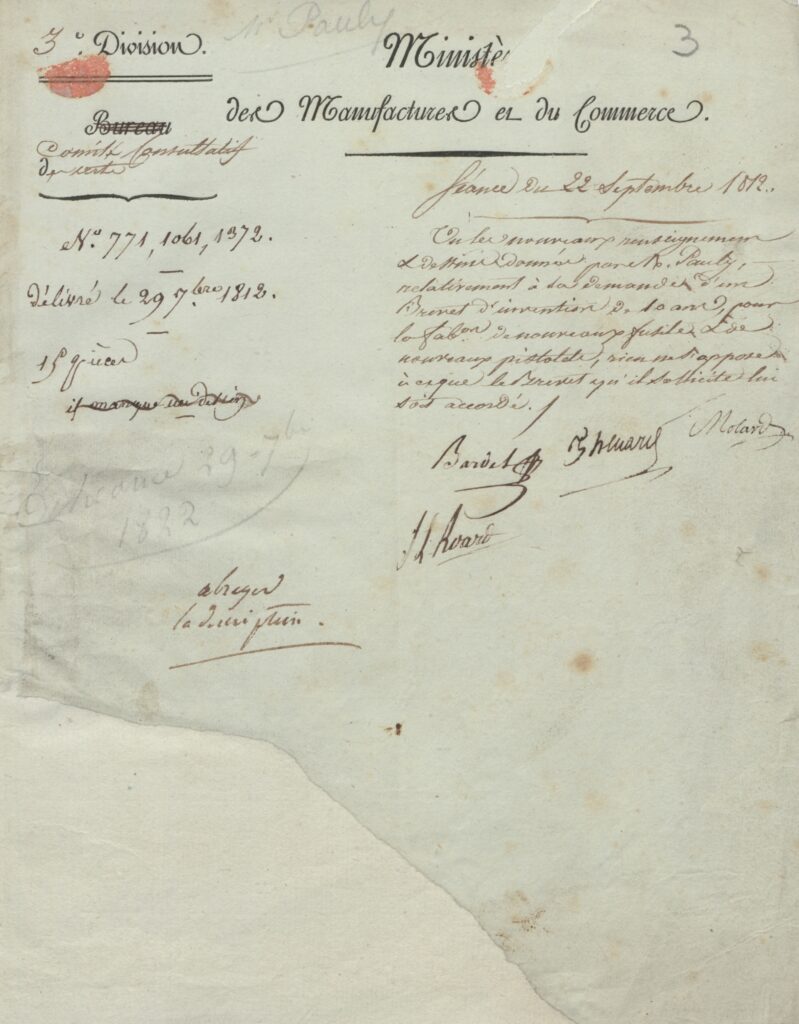 Mr Pauly
3
3e Division.
Ministè
des Manufactures et du Commerce.
Bureau
Comité Consultatif
des arts
No. 771, 1061, 1372.
délivré le 29 7bre 1812.
15 pièces
il manque un dessin
Séance du 22 Septembre 1812.
Vu les nouveaux renseignemens
& dessins donnés par M. Pauly,
relativement à sa demande d'un
Brevet d'invention de 10 ans, pour
la fabon. de nouveaux fusils & de
nouveaux pistolets, rien ne s'oppose
à ce que le Brevet qu'il sollicite lui
soit accordé.
Bardel
Thenard
Molard
Roard
29 7bre
1822
abreger
la description.